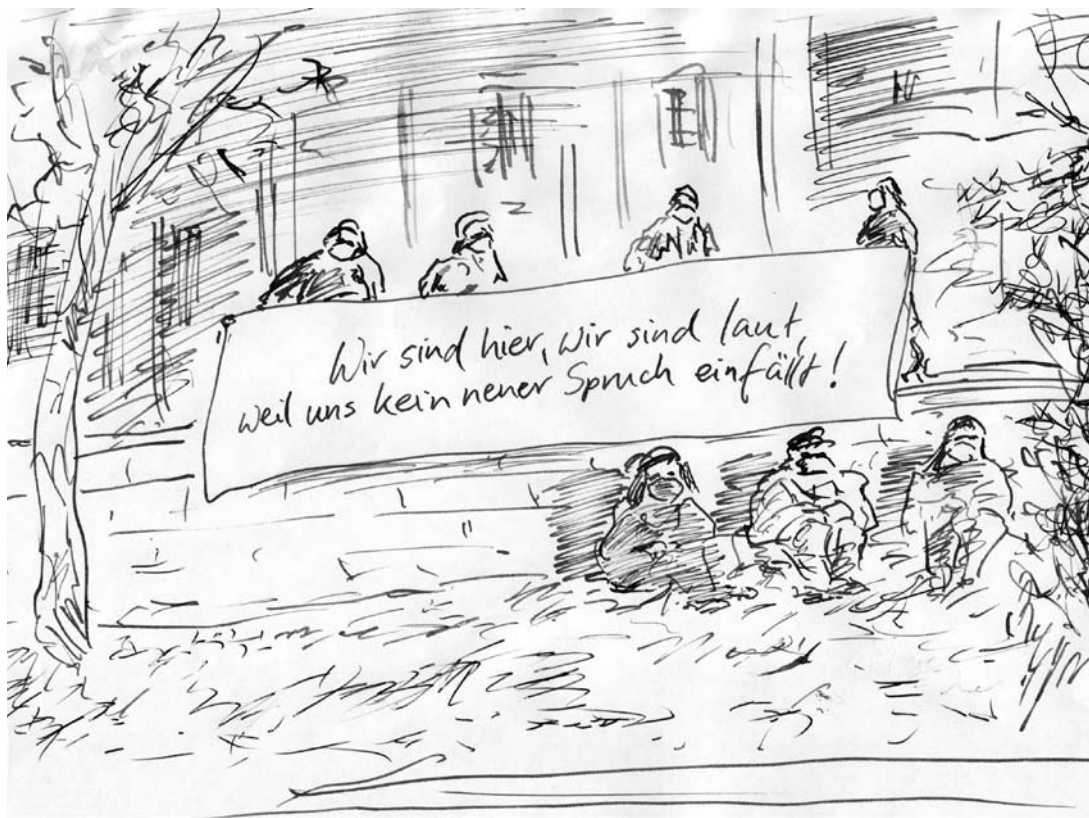 Wir sind hier, wir sind laut,
weil uns kein neuer Spruch einfällt!